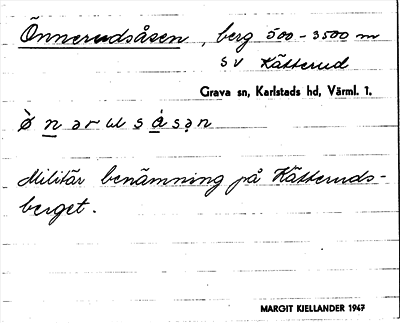 Önnerudsåsen, berg 500-3500 m
SV Kätterud
Grava sn, Karlstads hd, Värml. 1.
Militär benämning på Kätteruds-
berget.
MARGIT KJELLANDER 1947